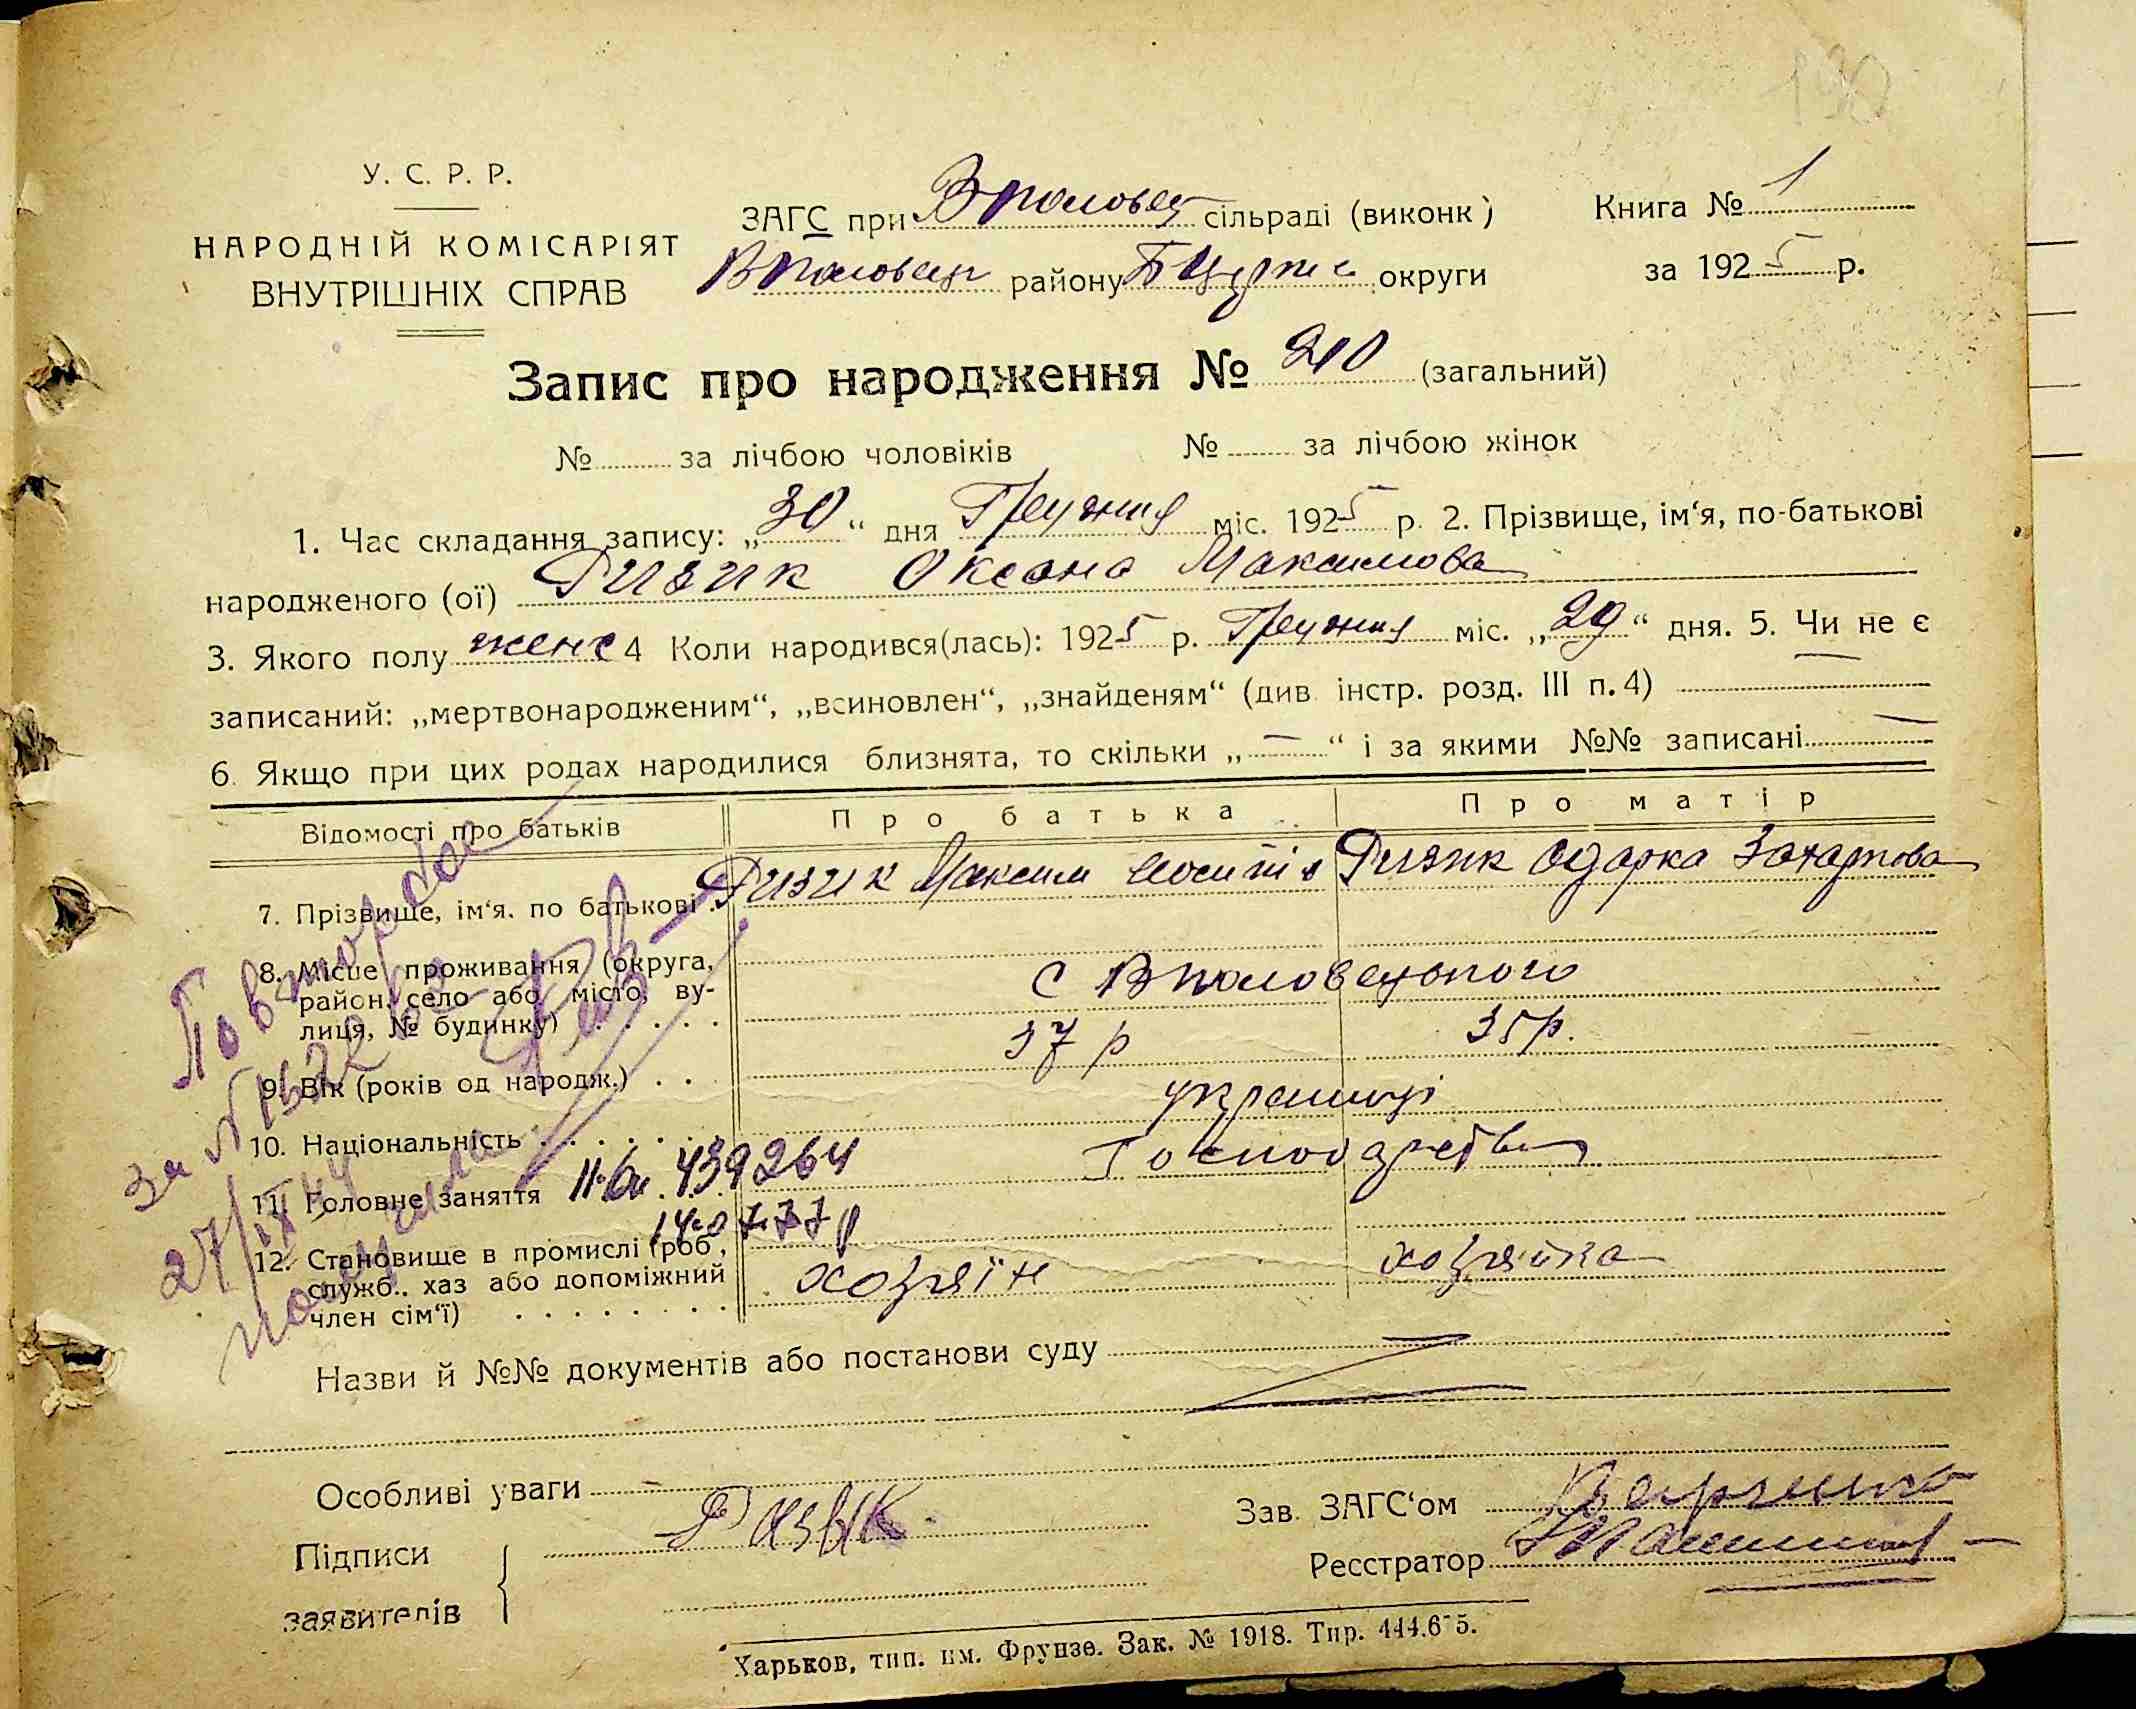 У. С. Р. Р.
НАРОДНІЙ КОМІСАРІЯТ
ВНУТРІШНІХ СПРАВ
ЗАГС при Вполовец сільраді (виконк)
Вполовец району БЦерк округи
Книга № 1
за 1925 р.
Запис про народження № 210 (загальний)
№ за лічбою чоловіків № за лічбою жінок
1. Час складання запису: „30“ дня Грудня міс. 1925 р. 2. Прізвище, ім‘я, по-батькові
народженого (ої) Ризик Оксана Максимова
3. Якого полу женс 4 Коли народився(лась): 1925 р. Грудня міс. „29“ дня. 5. Чи не є
записаний: „мертвонародженим“, „всиновлен“, „знайденям“ (див. інстр. розд. III п. 4) —
6. Якщо при цих родах народилися близнята, то скільки „—“ і за якими №№ записані —
Відомості про батьків Про батька Про матір
7. Прізвище, ім‘я. по батькові Ризик Максим Йосипів Ризик Одарка Захаркова
8. Місце проживання (округа,
район, село або місто, ву-
лиця, № будинку) с Вполовецького
9. Вік (років од народж.) 37 р 35 р.
10. Національність українці
11. Головне заняття Господарство
12. Становище в промислі (роб.,
служб., хаз або допоміжний
член сім‘ї) хозяїн хозяйка
Повторное
за №
27/IX 44
получила
II-бк 439264
14.07.77 р
Назви й №№ документів або постанови суду
Особливі уваги —
Підписи
заявителів
Ризик
Зав. ЗАГС‘ом
Реєстратор
Харьков, тип. им. Фрунзе. Зак. № 1918. Тир. 444.675.